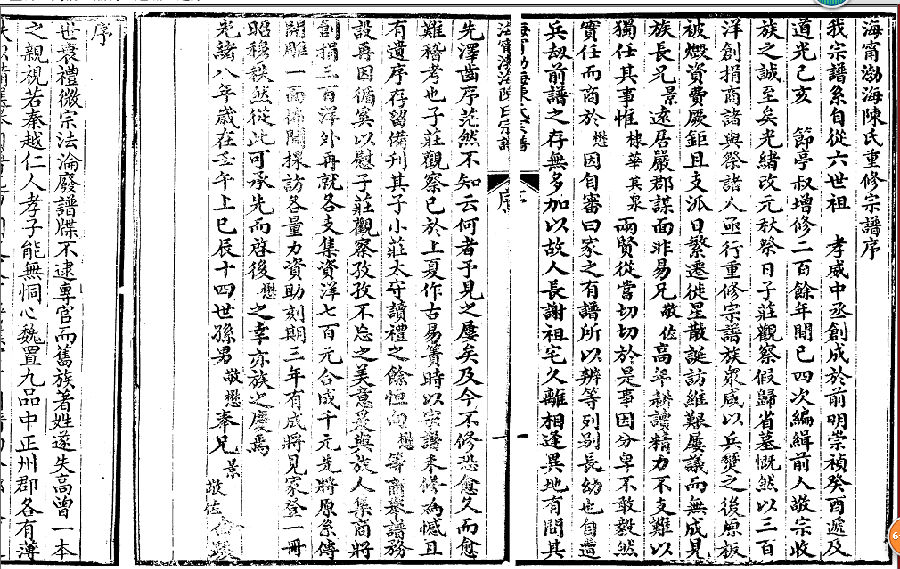 海甯渤海陳氏重修宗譜序
我宗譜系自從六世祖 孝威中丞創成於前明崇禎癸酉遞及
道光己亥 節亭叔增修二百餘年間已四次編緝前人敬宗收
族之誠至矣光緒改元秋祭日子莊觀察假歸省墓慨然以三百
洋創捐商諸與祭諸人亟行重修宗譜族眾咸以兵燹之後原板
被燬貲費厥鉅且支派日繁遷徙星散誕訪維艱屢議而無成見
族長兄景遠居嚴郡謀面非易兄敬佐高年耕讀精力不支難以
獨任其事惟棣華其泉兩賢從當切切於是事因分卑不敢毅然
實任而商於懋因自審曰家之有譜所以辨等列別長幼也自遭
兵劫前譜之存無多加以故人長謝祖宅久離相逢異地有問其
先澤齒序茫然不知云何者予見之屢矣及今不修恐愈久而愈
難稽考也子莊觀察已於上夏作古易簀時以宗譜未修為憾且
有遺序存留備刊其子小莊大守讀禮之餘恒向懋等商舉譜務
設再因循奚以慰子莊觀察孜孜不忘之美意爰與族人集商將
創捐三百洋外再就各支集資洋七百元合成千元先將原系傳
開雕一面佈聞採訪各量力資助刻期三年有成將見家登一冊
昭穆秩然從此可承先而啓後懋之幸亦族之慶焉
光緒八年歲在壬午上巳辰十四世孫男敬懋奉兄景
敬佐
序
世衰禮微宗法淪廢譜牒不逮專官而舊族著姓遂失高曾一本
之親視若秦越仁人孝子能無恫心魏置九品中正州郡各有簿